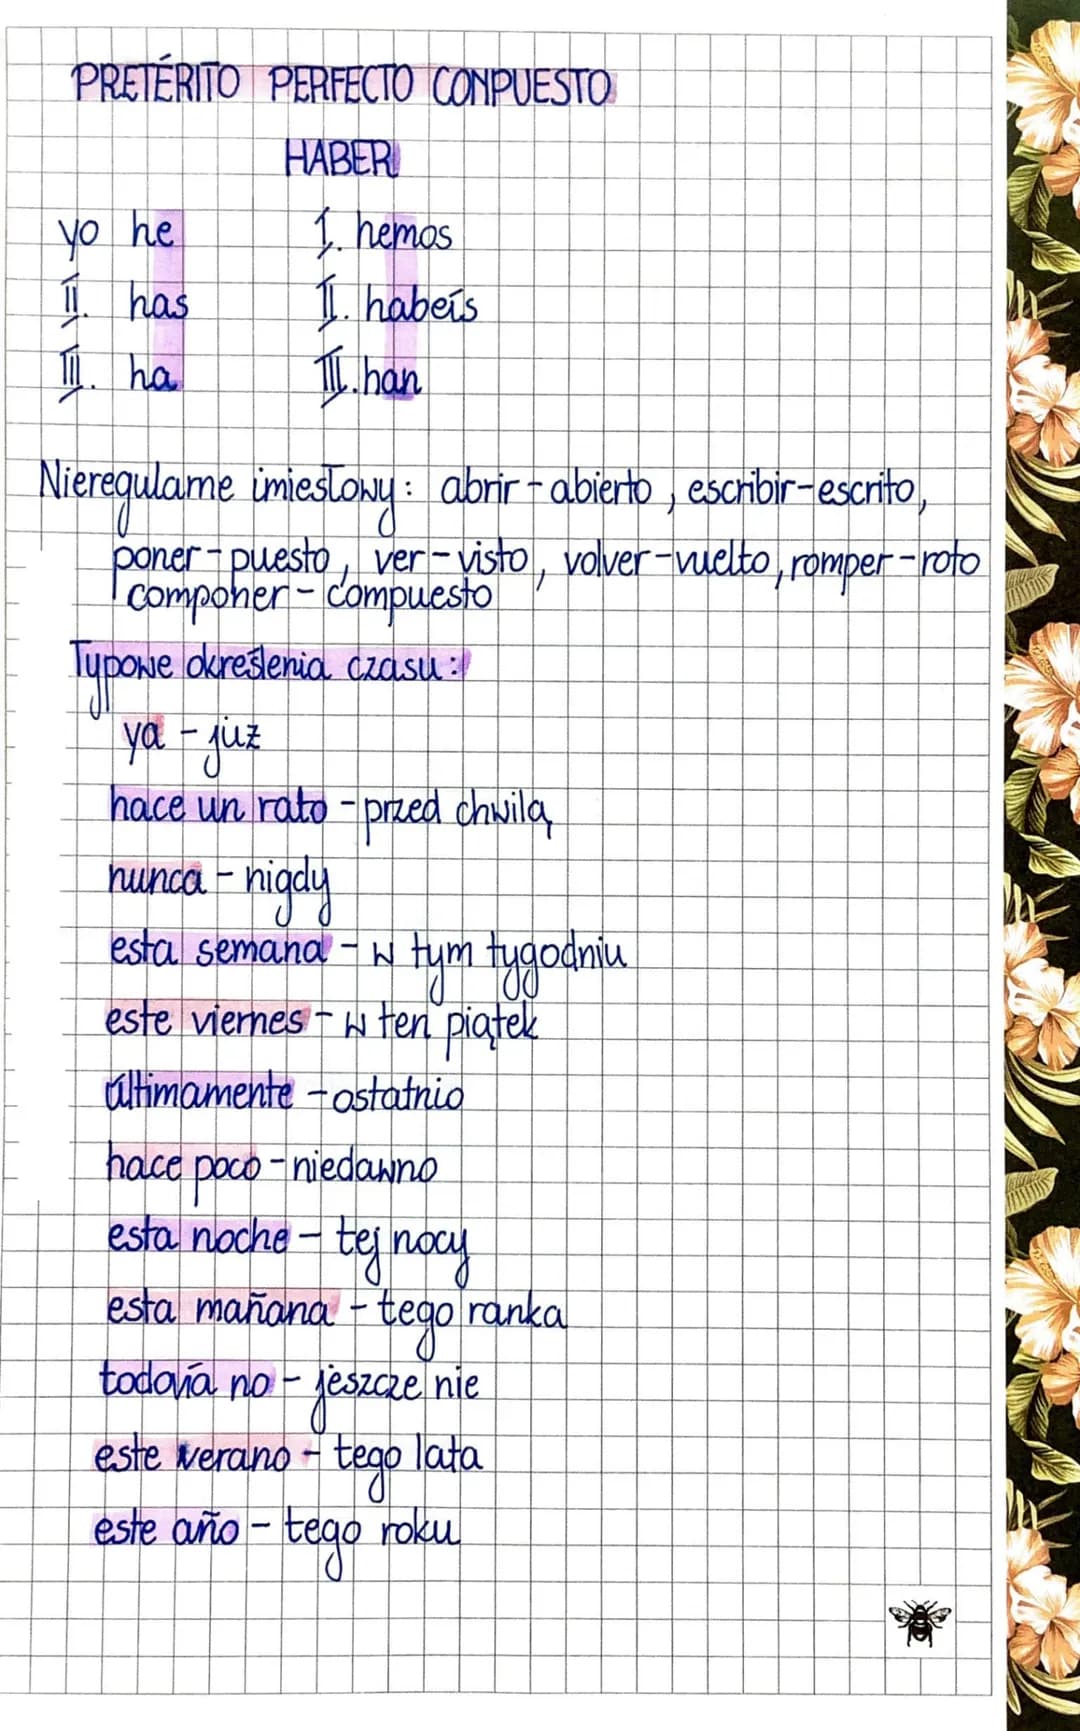 PRETÉRITO PERFECTO CONPUESTO
HABER
yo he I. hemos
II. has II. habeís
III. ha III. han
Nieregularne imiesłowy: abrir - abierto, escribir - escrito,
poner - puesto, ver - visto, volver - vuelto, romper - roto
componer - compuesto
Typowe określenia czasu:
ya - już
hace un rato - przed chwilą
nunca - nigdy
esta semana - w tym tygodniu
este viernes - w ten piątek
últimamente - ostatnio
hace poco - niedawno
esta noche - tej nocy
esta mañana - tego ranka
todavía no - jeszcze nie
este verano - tego lata
este año - tego roku